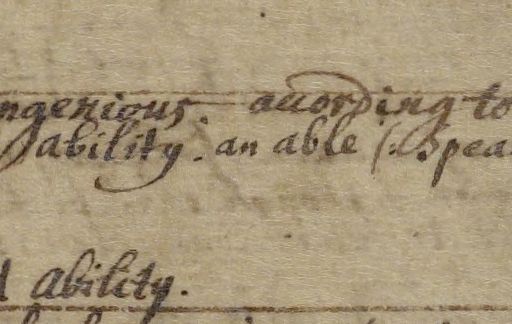 ngenious. according to
ability. an able (: Spea
ability.